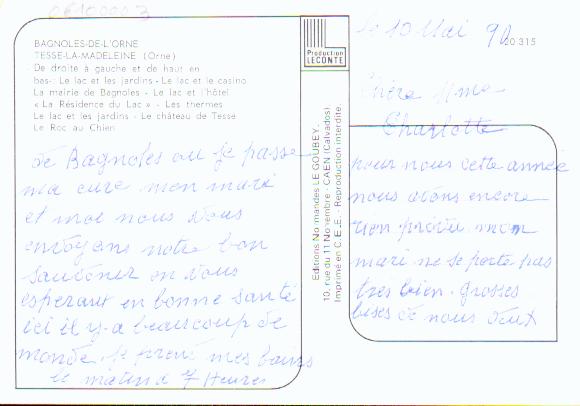 06100003
BAGNOLES-DE-L'ORNE
TESSE-LA-MADELEINE (Orne)
De droite à gauche et de haut en
bas : Le lac et les jardins - Le lac et le casino
La mairie de Bagnoles - Le lac et l'hôtel
« La Résidence du Lac » - Les thermes
Le lac et les jardins - Le château de Tessé
Le Roc au Chien
de Bagnoles ou je passe
ma cure mon mari
et moi nous vous
envoyons notre bon
souvenir en vous
esperant en bonne santé
ici il y a beaucoup de
monde je prend mes bains
le matin a 7 Heures
Production
LECONTE
Editions Normandes LE GOUBEY
10, rue du 11 Novembre - CAEN (Calvados)
Imprimé en C.E.E. - Reproduction interdite
le 10 Mai 90
20 315
Chère Mme
Charlotte
pour nous cette année
nous avons encore
rien prévu mon
mari ne se porte pas
tres bien. grosses
bises de nous deux